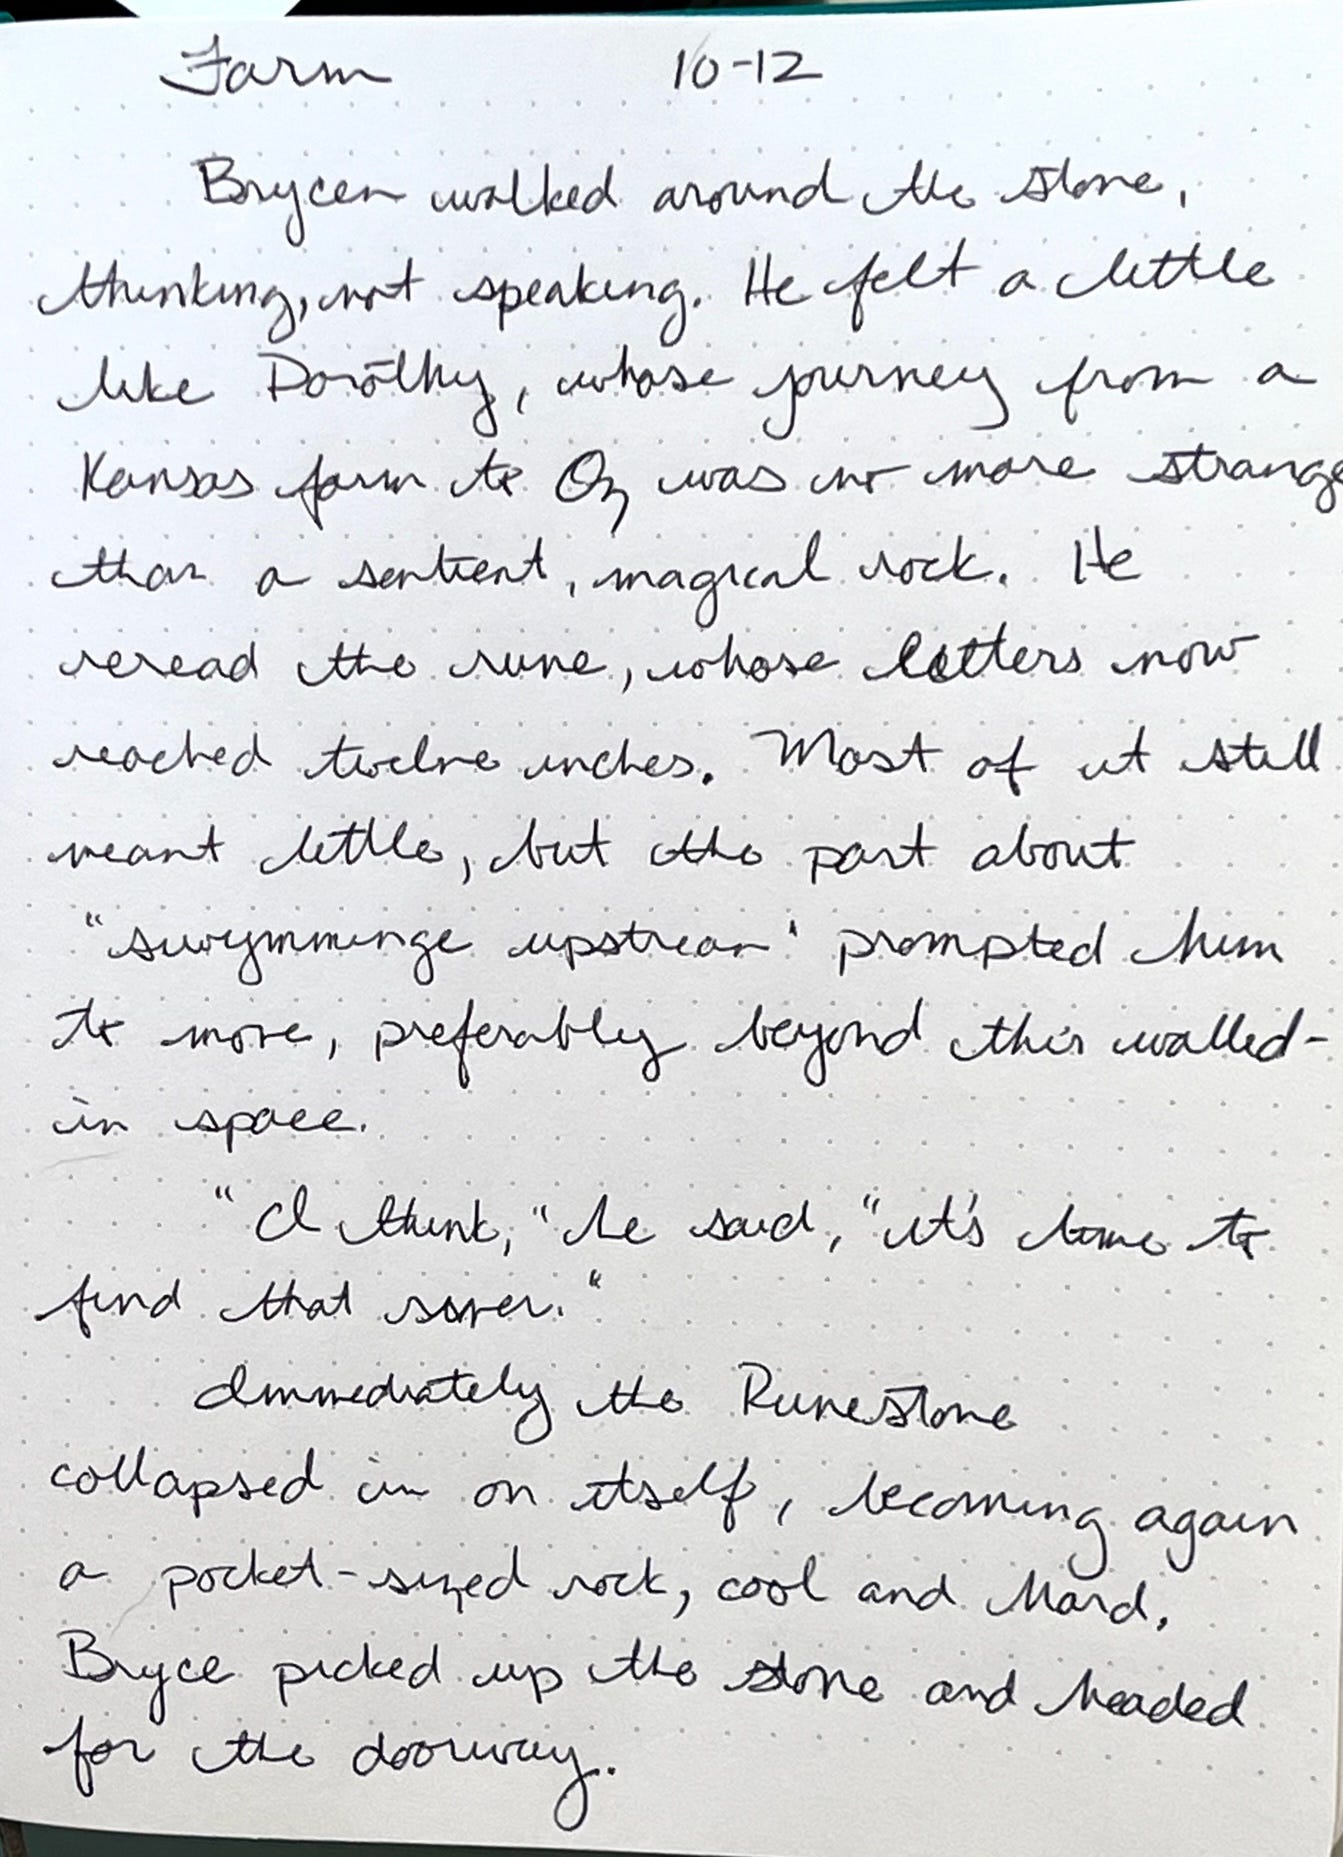 Farm 10-12
Brycen walked around the stone,
thinking, not speaking. He felt a little
like Dorothy, whose journey from a
Kansas farm to Oz was no more strange
than a sentient, magical rock. He
reread the rune, whose letters now
reached twelve inches. Most of it still
meant little, but the part about
"swymminge upstream" prompted him
to move, preferably beyond this walled-
in space.
"I think," he said, "it's time to
find that river."
Immediately the Runestone
collapsed in on itself, becoming again
a pocket-sized rock, cool and hard.
Bryce picked up the stone and headed
for the doorway.